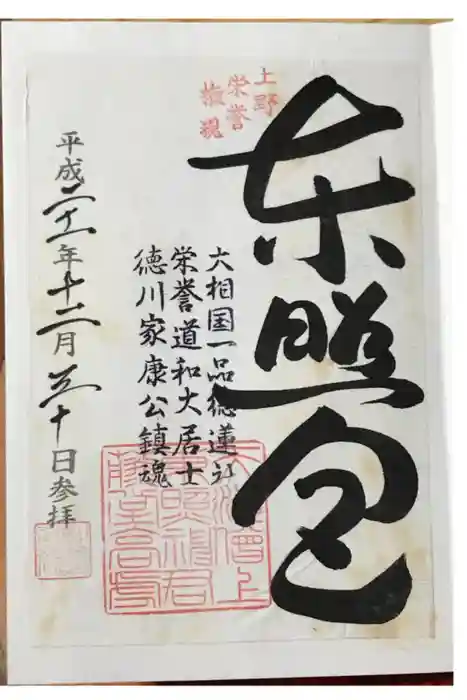 上野
栄誉
権現
東照宮
大相国一品徳蓮社
栄誉道和大居士
徳川家康公鎮魂
天海僧上
東照神君
藤堂高虎
平成二十一年十二月三十日参拝